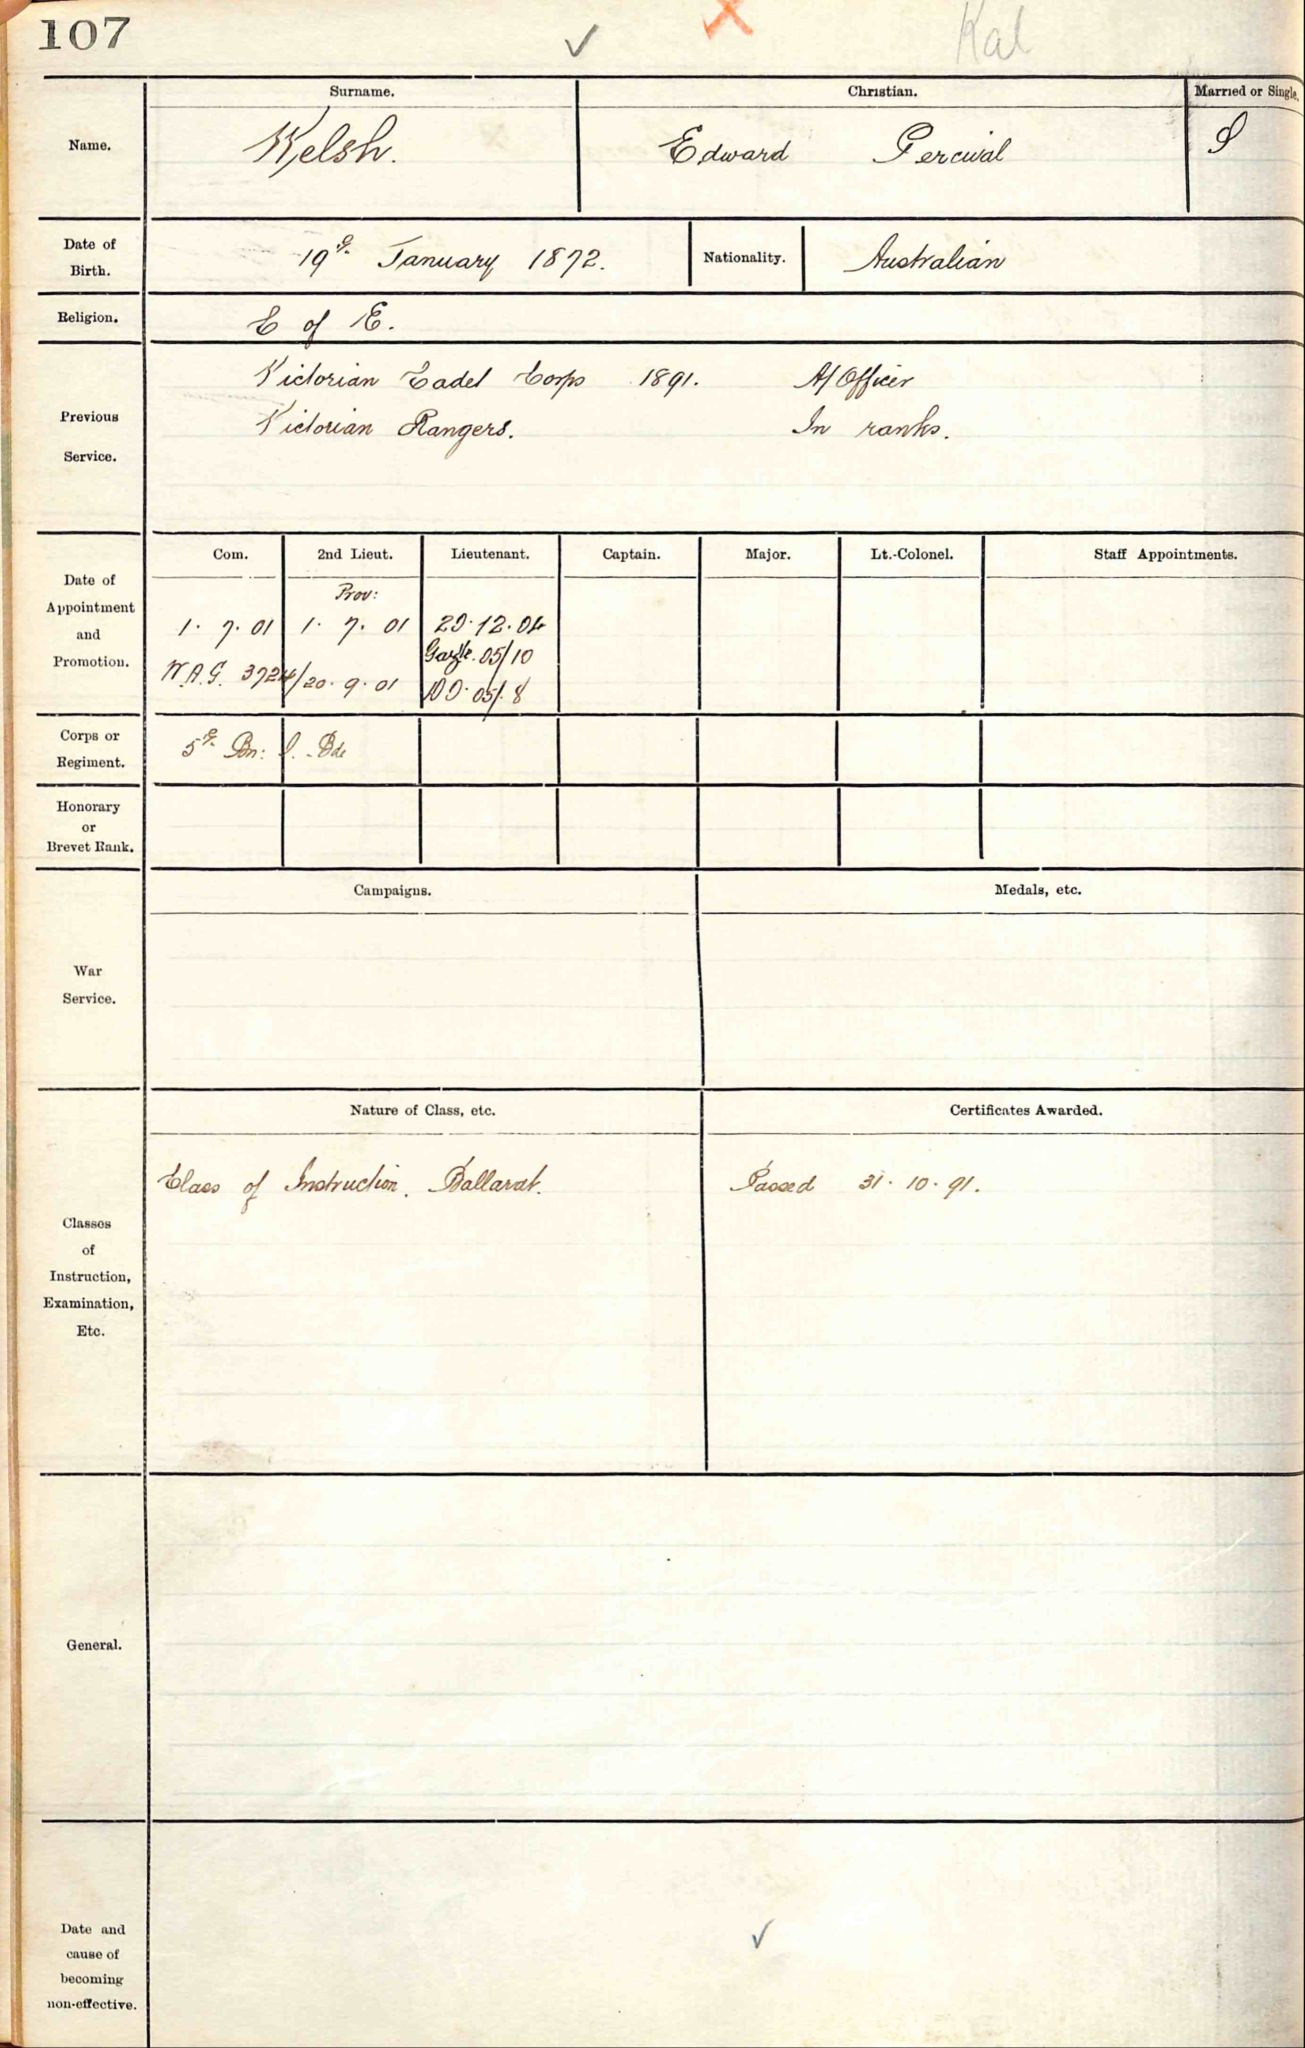 107
Kal
Surname.
Christian.
Married or Single.
Name.
Welsh.
Edward Percival
S
Date of
Birth.
19th January 1872.
Nationality.
Australian
Religion.
C of E.
Previous
Service.
Victorian Cadet Corps 1891. A/Officer
Victorian Rangers. In ranks.
Date of
Appointment
and
Promotion.
Com.
2nd Lieut.
Lieutenant.
Captain.
Major.
Lt.-Colonel.
Staff Appointments.
Prov:
1. 7. 01
1. 7. 01
20.12.04
Gaz'tte. 05/10
W.A.G. 3724/20.9.01
DO. 05/8
Corps or
Regiment.
5th Bn: I. Bde
Honorary
or
Brevet Rank.
War
Service.
Campaigns.
Medals, etc.
Classes
of
Instruction,
Examination,
Etc.
Nature of Class, etc.
Certificates Awarded.
Class of Instruction. Ballarat.
Passed 31.10.91.
General.
Date and
cause of
becoming
non-effective.